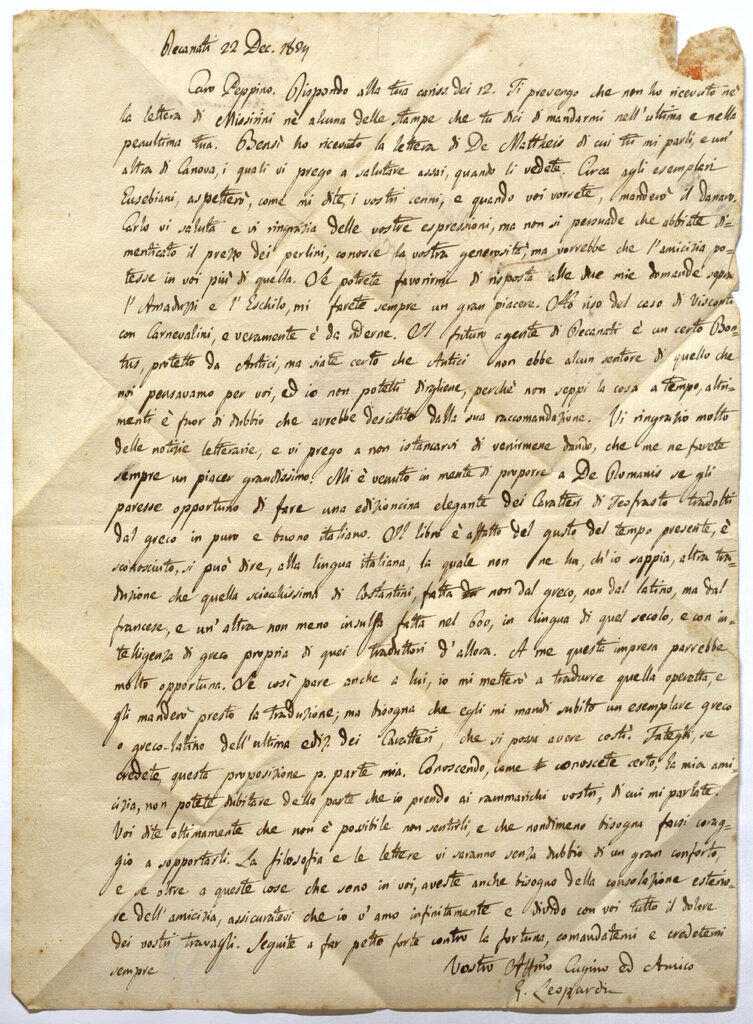 Recanati 22 Dec. 1824
Caro Peppino. Rispondo alla tua cariss. dei 12. Ti prevengo che non ho ricevuto nè
la lettera di Missirini nè alcuna delle stampe che tu dici di mandarmi nell'ultima e nella
penultima tua. Bensì ho ricevuto la lettera di De Mattheis di cui tu mi parli, e un'
altra di Canova, i quali vi prego a salutare assai, quando li vedete. Circa agli esemplari
Eusebiani, aspetterò, come mi dite, i vostri cenni, e quando voi vorrete, manderò il danaro.
Carlo vi saluta e vi ringrazia delle vostre espressioni, ma non si persuade che abbiate di-
menticato il prezzo dei perlini, conosce la vostra generosità, ma vorrebbe che l'amicizia po-
tesse in voi più di quella. Se potrete favorirmi di risposta alle due mie domande sopra
l'Amaduzzi e l'Eschilo, mi farete sempre un gran piacere. Ho riso del caso di Visconti
con Carnevalini, e veramente è da riderne. Il futuro agente di Recanati è un certo Bon-
tus, protetto da Antici, ma siate certo che Antici non ebbe alcun sentore di quello che
noi pensavamo per voi, ed io non potetti dirgliene, perchè non seppi la cosa a tempo, altri-
menti è fuor di dubbio che avrebbe desistito dalla sua raccomandazione. Vi ringrazio molto
delle notizie letterarie, e vi prego a non istancarvi di venirmene dando, che me ne farete
sempre un piacer grandissimo. Mi è venuto in mente di proporre a De Romanis se gli
paresse opportuno di fare una edizioncina elegante dei Caratteri di Teofrasto tradotti
dal greco in puro e buono italiano. Il libro è affatto del gusto del tempo presente, è
sconosciuto, si può dire, alla lingua italiana, la quale non ne ha, ch'io sappia, altra tra-
duzione che quella sciocchissima di Costantini, fatta non dal greco, non dal latino, ma dal
francese, e un'altra non meno insulsa fatta nel 600, in lingua di quel secolo, e con in-
telligenza di greco propria di quei traduttori d'allora. A me questa impresa parrebbe
molto opportuna. Se così pare anche a lui, io mi metterò a tradurre quella operetta, e
gli manderò presto la traduzione; ma bisogna che egli mi mandi subito un esemplare greco
o greco-latino dell'ultima ediz. dei Caratteri, che si possa avere costì. Fategli, se
credete, questa proposizione p. parte mia. Conoscendo, come conoscete certo, la mia ami-
cizia, non potete dubitare della parte che io prendo ai rammarichi vostri, di cui mi parlate.
Voi dite ottimamente che non è possibile non sentirli, e che nondimeno bisogna farsi corag-
gio a sopportarli. La filosofia e le lettere vi saranno senza dubbio di un gran conforto,
e se oltre a queste cose che sono in voi, aveste anche bisogno della consolazione esterio-
re dell'amicizia, assicuratevi che io v'amo infinitamente e divido con voi tutto il dolore
dei vostri travagli. Seguite a far petto forte contro la fortuna, comandatemi e credetemi
sempre Vostro Affmo Cugino ed Amico
G. Leopardi